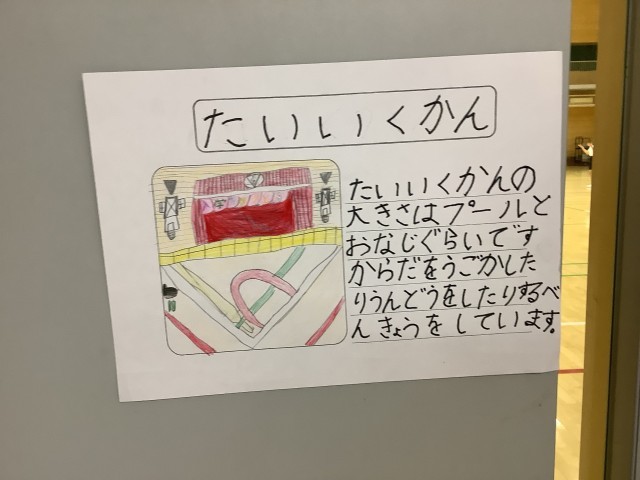 たいいくかん
たいいくかんの
大きさはプールと
おなじぐらいです
からだをうごかした
りうんどうをしたりするべ
んきょうをしています。